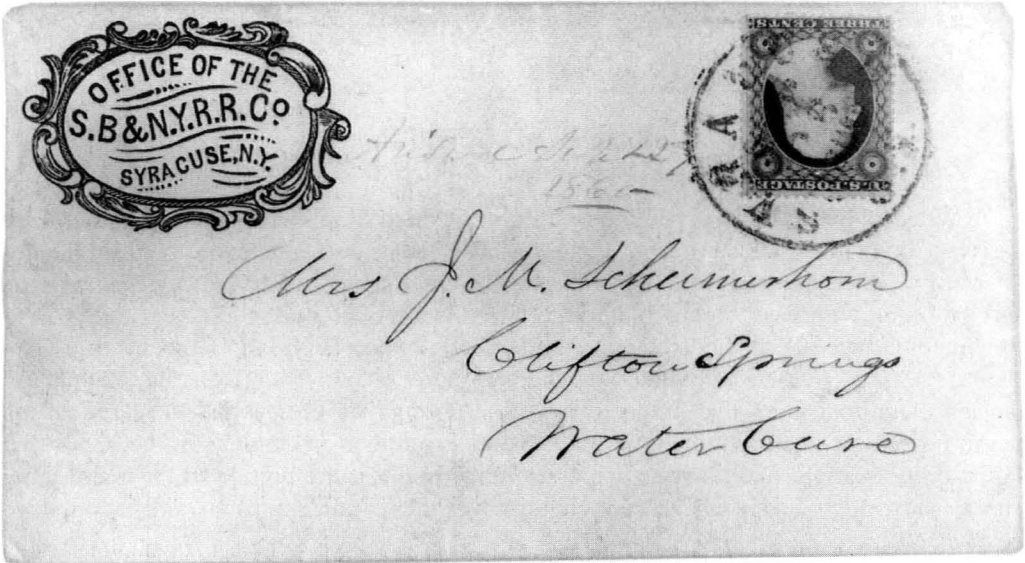 OFFICE OF THE
S.B & N.Y.R.R. Co
SYRACUSE, N.Y.
THREE CENTS
U.S. POSTAGE
1861
Mrs J. M. Schermerhorn
Clifton Springs
Water Cure